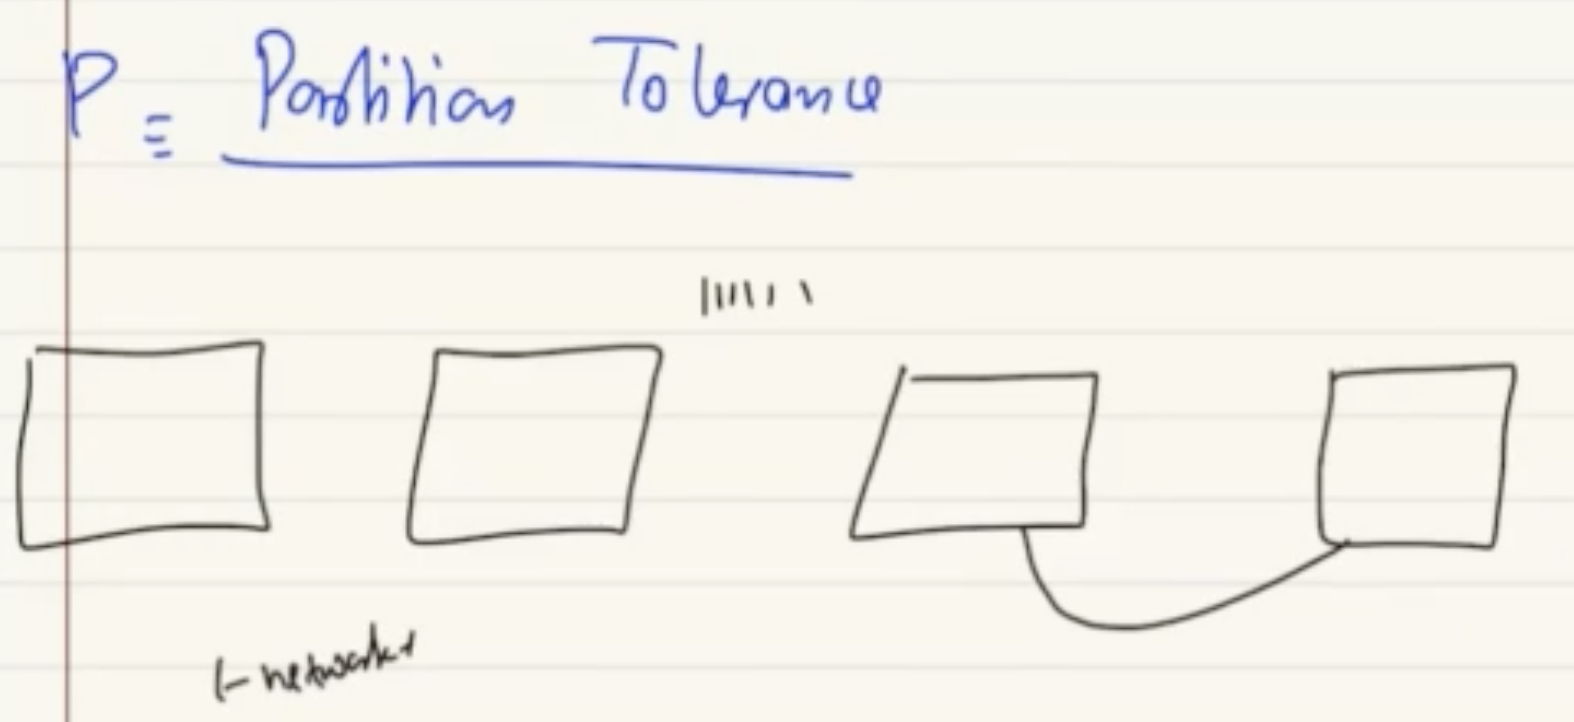 P ≡ Partition Tolerance
networks